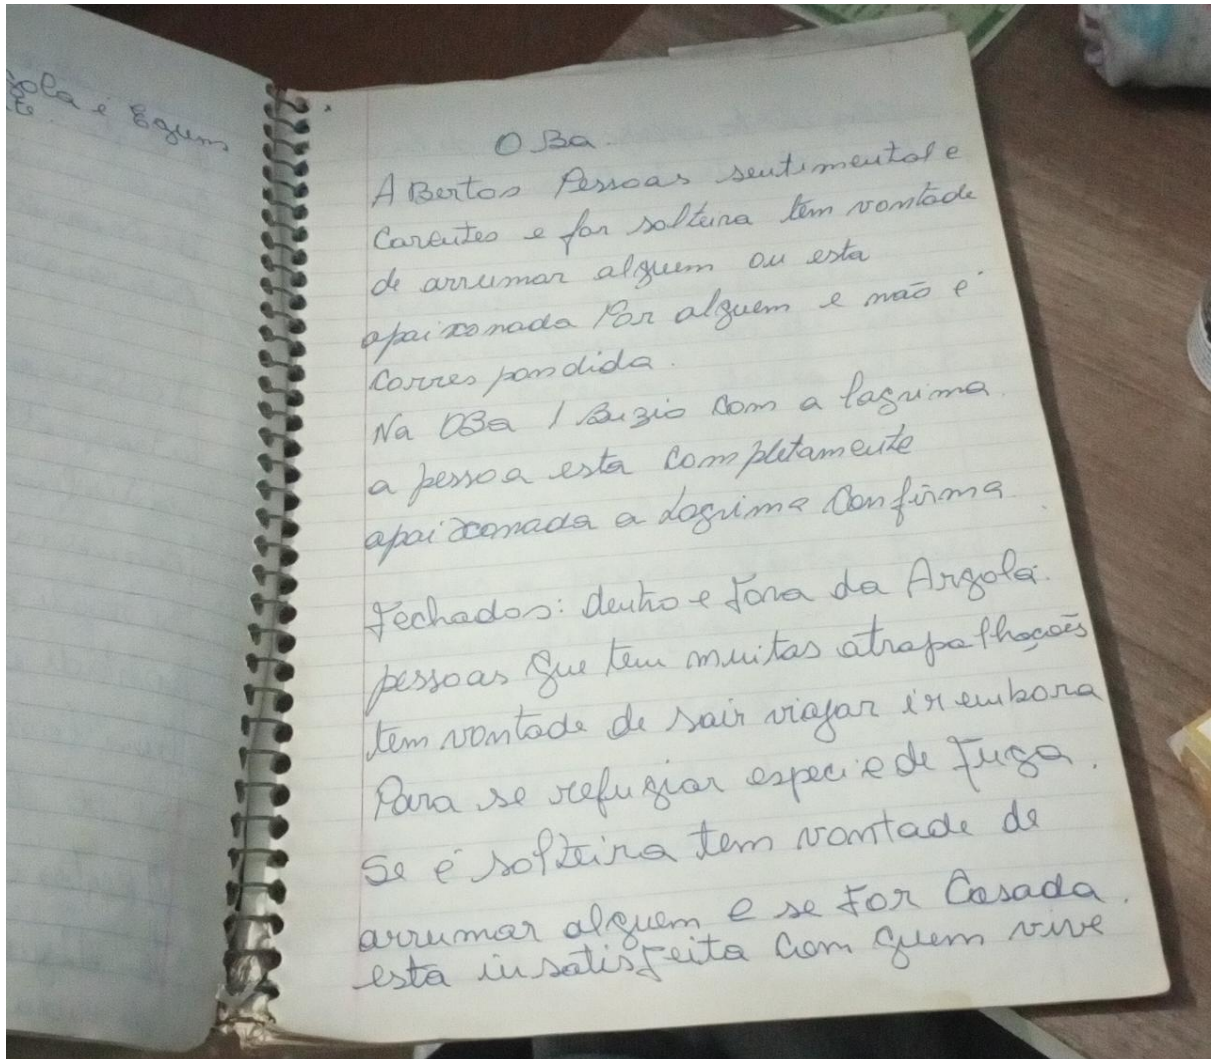 gola e Egum
te.
O Ba.
A Bertos Pessoas sentimental e
Carentes e for solteira tem vontade
de arrumar alguem ou esta
apaixonada Por alguem e não é
Corres pondida.
Na OBa 1 Buzio Com a lagrima.
a pessoa esta Completamente
apaixonada a Lagrima Confirma
Fechados: dentro e Fora da Argola.
pessoas que tem muitas atrapalhações
tem vontade de sair viajar ir embora
Para se refugiar especie de Fuga.
Se é solteira tem vontade de
arrumar alguem e se For Casada.
esta insatisfeita Com quem vive